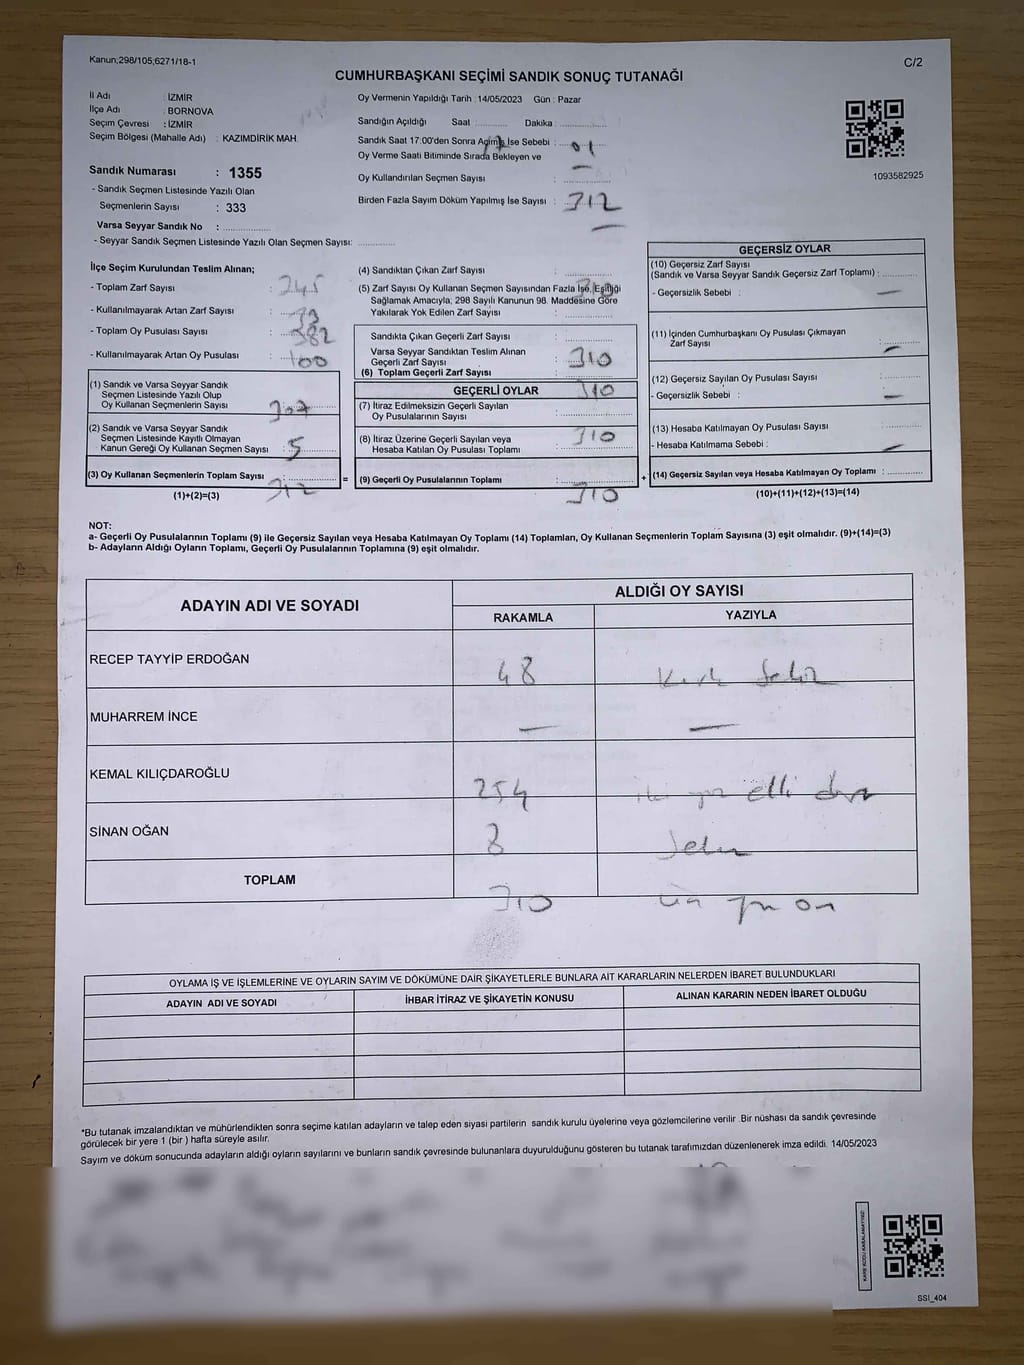 Kanun;298/105;6271/18-1
C/2
CUMHURBAŞKANI SEÇİMİ SANDIK SONUÇ TUTANAĞI
İl Adı : İZMİR
İlçe Adı : BORNOVA
Seçim Çevresi : İZMİR
Seçim Bölgesi (Mahalle Adı) : KAZIMDİRİK MAH.
Sandık Numarası : 1355
- Sandık Seçmen Listesinde Yazılı Olan
Seçmenlerin Sayısı : 333
Varsa Seyyar Sandık No :
- Seyyar Sandık Seçmen Listesinde Yazılı Olan Seçmen Sayısı:
Oy Vermenin Yapıldığı Tarih : 14/05/2023 Gün : Pazar
Sandığın Açıldığı Saat Dakika
Sandık Saat 17:00'den Sonra Açılmış İse Sebebi : 17 01
Oy Verme Saati Bitiminde Sırada Bekleyen ve
Oy Kullandırılan Seçmen Sayısı : —
Birden Fazla Sayım Döküm Yapılmış İse Sayısı : 312
—
1093582925
İlçe Seçim Kurulundan Teslim Alınan;
- Toplam Zarf Sayısı :
- Kullanılmayarak Artan Zarf Sayısı :
- Toplam Oy Pusulası Sayısı : 382
- Kullanılmayarak Artan Oy Pusulası : 100
(1) Sandık ve Varsa Seyyar Sandık
Seçmen Listesinde Yazılı Olup
Oy Kullanan Seçmenlerin Sayısı : 307
(2) Sandık ve Varsa Seyyar Sandık
Seçmen Listesinde Kayıtlı Olmayan
Kanun Gereği Oy Kullanan Seçmen Sayısı : 5
(3) Oy Kullanan Seçmenlerin Toplam Sayısı : 312
(1)+(2)=(3)
(4) Sandıktan Çıkan Zarf Sayısı : 310
(5) Zarf Sayısı Oy Kullanan Seçmen Sayısından Fazla İse, Eşitliği
Sağlamak Amacıyla; 298 Sayılı Kanunun 98. Maddesine Göre
Yakılarak Yok Edilen Zarf Sayısı :
Sandıkta Çıkan Geçerli Zarf Sayısı :
Varsa Seyyar Sandıktan Teslim Alınan
Geçerli Zarf Sayısı : 310
(6) Toplam Geçerli Zarf Sayısı :
GEÇERLİ OYLAR 310
(7) İtiraz Edilmeksizin Geçerli Sayılan
Oy Pusulalarının Sayısı :
(8) İtiraz Üzerine Geçerli Sayılan veya 310
Hesaba Katılan Oy Pusulası Toplamı :
= (9) Geçerli Oy Pusulalarının Toplamı : 310
GEÇERSİZ OYLAR
(10) Geçersiz Zarf Sayısı
(Sandık ve Varsa Seyyar Sandık Geçersiz Zarf Toplamı) :
- Geçersizlik Sebebi : —
(11) İçinden Cumhurbaşkanı Oy Pusulası Çıkmayan
Zarf Sayısı : —
(12) Geçersiz Sayılan Oy Pusulası Sayısı :
- Geçersizlik Sebebi : —
(13) Hesaba Katılmayan Oy Pusulası Sayısı :
- Hesaba Katılmama Sebebi : —
+ (14) Geçersiz Sayılan veya Hesaba Katılmayan Oy Toplamı :
(10)+(11)+(12)+(13)=(14)
NOT:
a- Geçerli Oy Pusulalarının Toplamı (9) ile Geçersiz Sayılan veya Hesaba Katılmayan Oy Toplamı (14) Toplamları, Oy Kullanan Seçmenlerin Toplam Sayısına (3) eşit olmalıdır. (9)+(14)=(3)
b- Adayların Aldığı Oyların Toplamı, Geçerli Oy Pusulalarının Toplamına (9) eşit olmalıdır.
ADAYIN ADI VE SOYADI
ALDIĞI OY SAYISI
RAKAMLA YAZIYLA
RECEP TAYYİP ERDOĞAN 48 Kırk Sekiz
MUHARREM İNCE — —
KEMAL KILIÇDAROĞLU 254 iki yüz elli dört
SİNAN OĞAN 8 Sekiz
TOPLAM 310 üç yüz on
OYLAMA İŞ VE İŞLEMLERİNE VE OYLARIN SAYIM VE DÖKÜMÜNE DAİR ŞİKAYETLERLE BUNLARA AİT KARARLARIN NELERDEN İBARET BULUNDUKLARI
ADAYIN ADI VE SOYADI İHBAR İTİRAZ VE ŞİKAYETİN KONUSU ALINAN KARARIN NEDEN İBARET OLDUĞU
*Bu tutanak imzalandıktan ve mühürlendikten sonra seçime katılan adayların ve talep eden siyasi partilerin sandık kurulu üyelerine veya gözlemcilerine verilir. Bir nüshası da sandık çevresinde
görülecek bir yere 1 (bir ) hafta süreyle asılır.
Sayım ve döküm sonucunda adayların aldığı oyların sayılarını ve bunların sandık çevresinde bulunanlara duyurulduğunu gösteren bu tutanak tarafımızdan düzenlenerek imza edildi. 14/05/2023
SSI_404